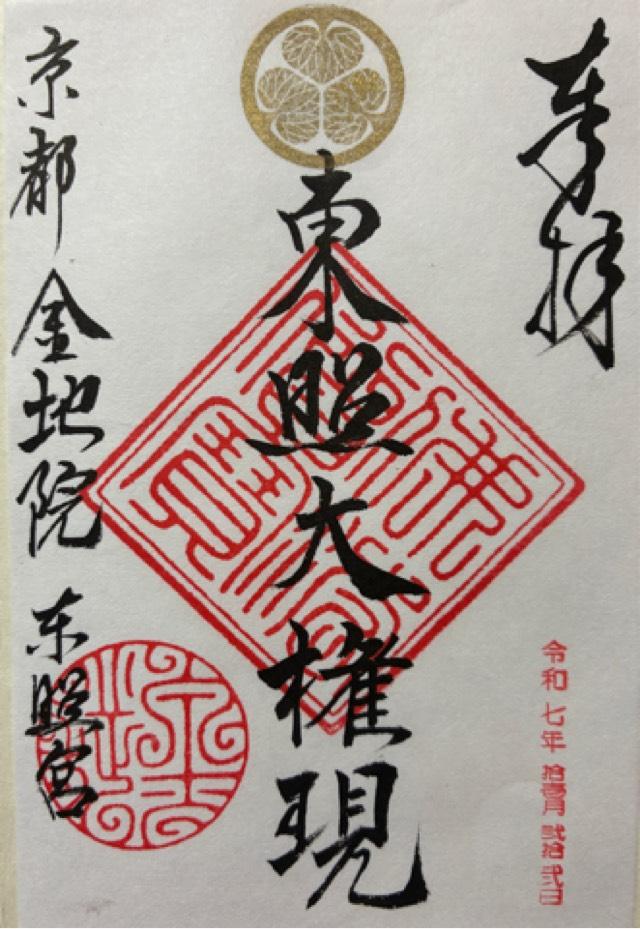 奉拝
東照大権現
京都 金地院 東照宮
令和七年 拾壱月 弐拾弐日